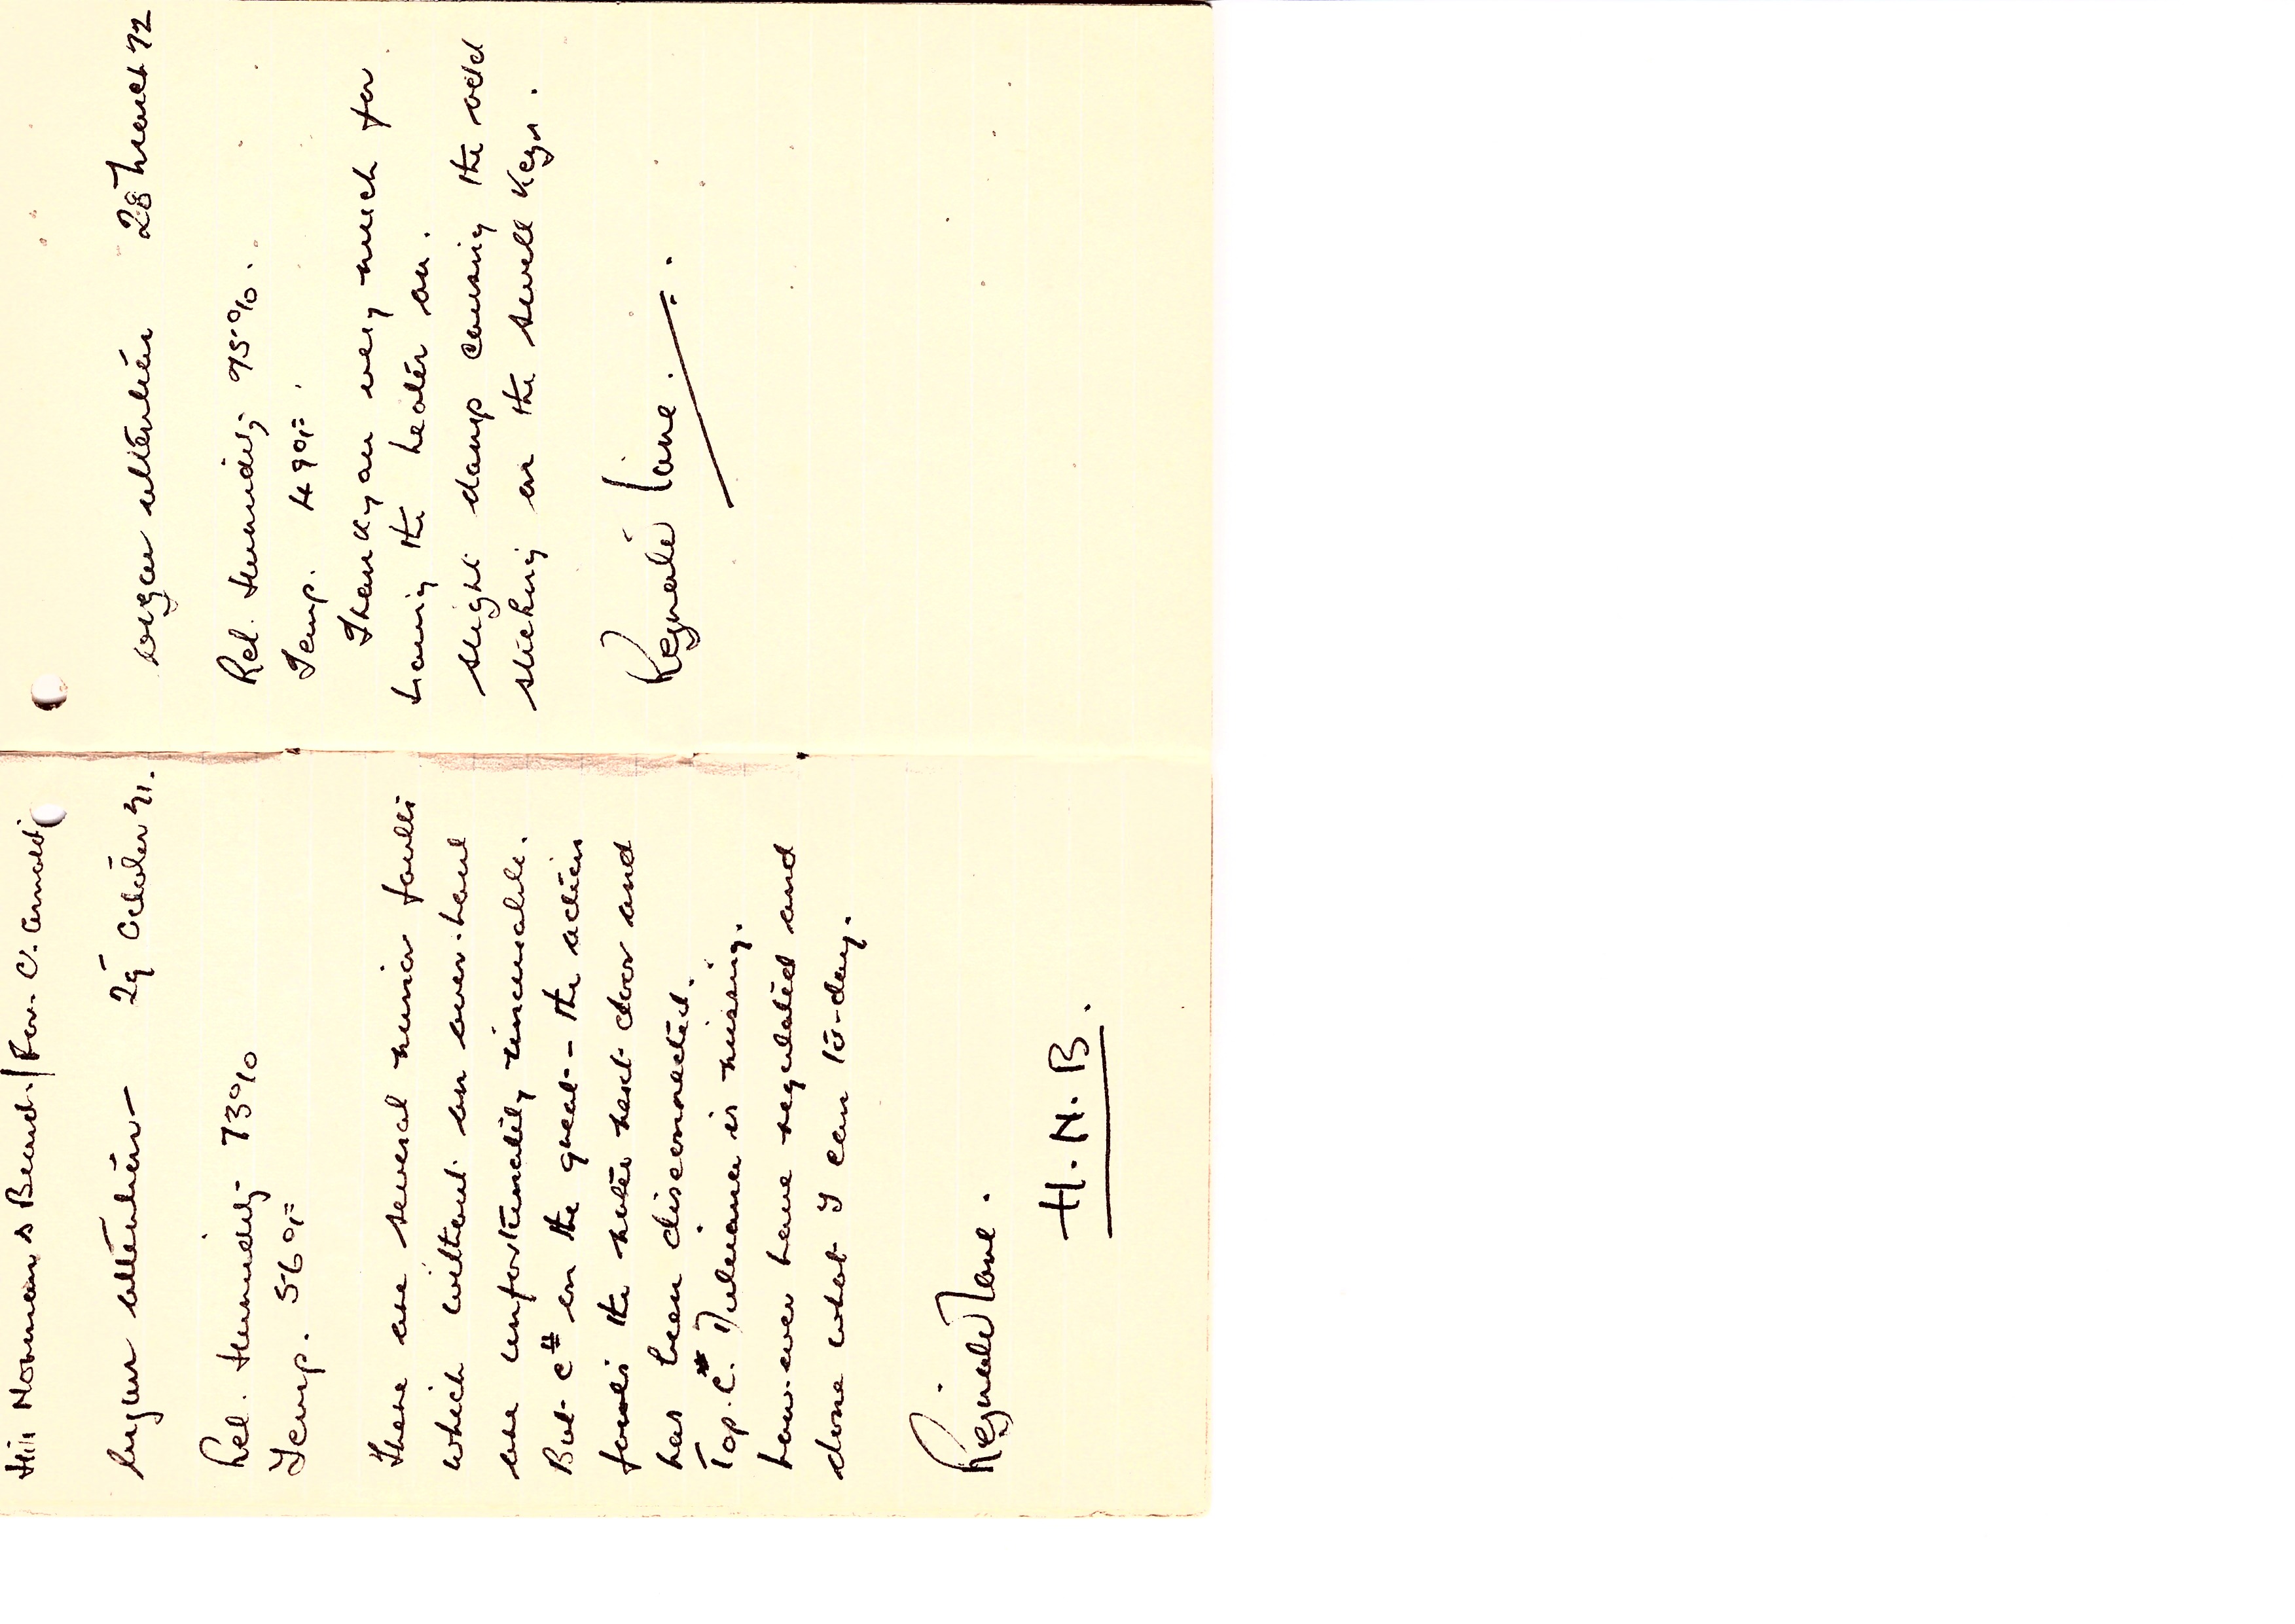 Hill Norman & Beard. / For. C. Arnold
Organ attention - 29 October 71.
Rel. Humidity - 73%
Temp. 56°F
There are several minor faults
which without an over-haul
are unfortunately incurable.
But C# on the great - the action
fouls the note next door and
has been disconnected.
Top. C.# Dulciana is missing.
how-ever have regulated and
done what I can to-day.
Reginald Lane.
H.N.B.
Organ attention 28 March 72
Rel. Humidity 75%.
Temp. 49°F.
Thank you very much for
having the heater on.
Slight damp causing the odd
sticking on the swell keys.
Reginald Lane.